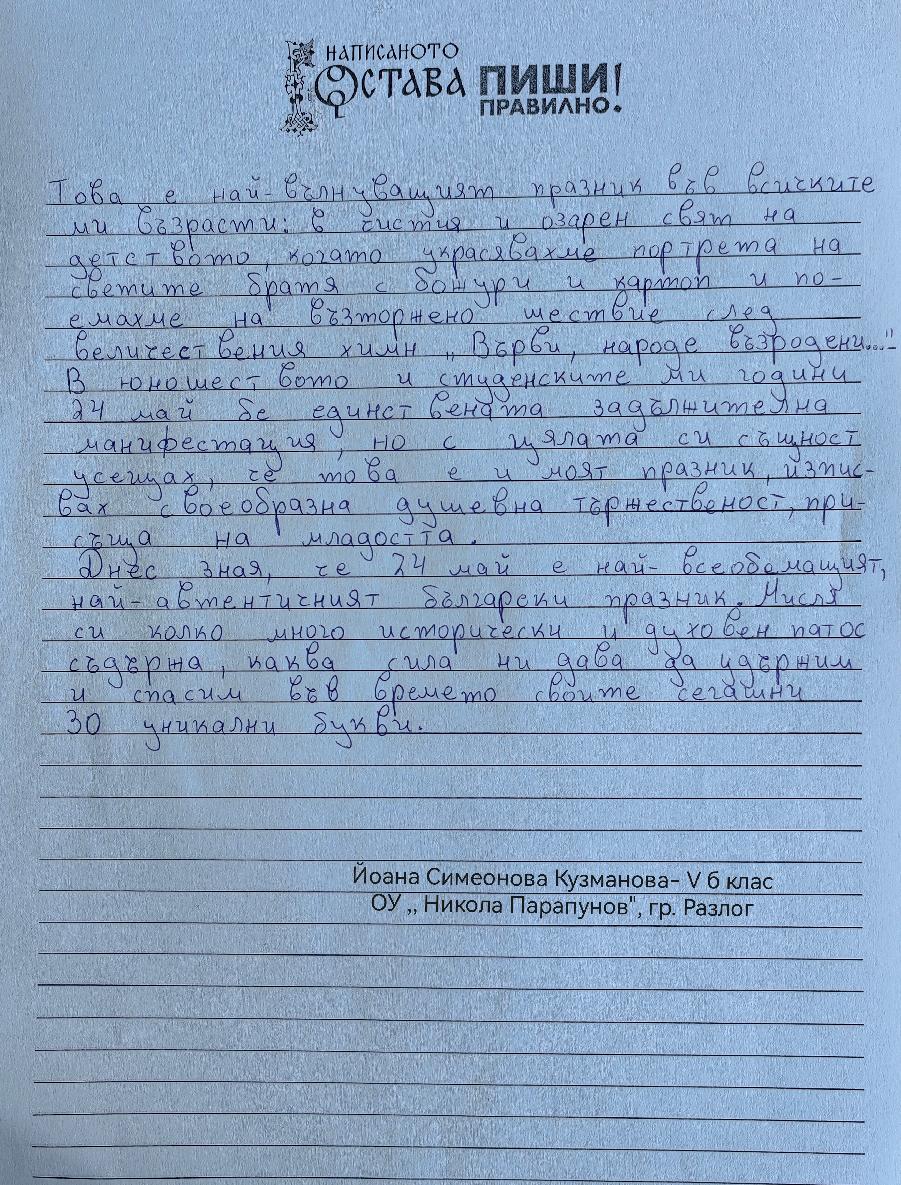 НАПИСАНОТО
ОСТАВА ПИШИ
ПРАВИЛНО!
Това е най-вълнуващият празник във всичките
ми възрасти: в чистия и озарен свят на
детството, когато украсявахме портрета на
светите братя с божури и картоп и по-
емахме на възторжено шествие след
величествения химн „Върви, народе възродени..."
В юношеството и студенските ми години
24 май бе единствената задължителна
манифестация, но с цялата си същност
усещах, че това е и моят празник, изпис-
вах своеобразна душевна тържественост, при-
съща на младостта.
Днес зная, че 24 май е най-всеобемащият,
най-автентичният български празник. Мисля
си колко много исторически и духовен патос
съдържа, каква сила ни дава да удържим
и спасим във времето своите сегашни
30 уникални букви.
Йоана Симеонова Кузманова- V б клас
ОУ ,, Никола Парапунов", гр. Разлог